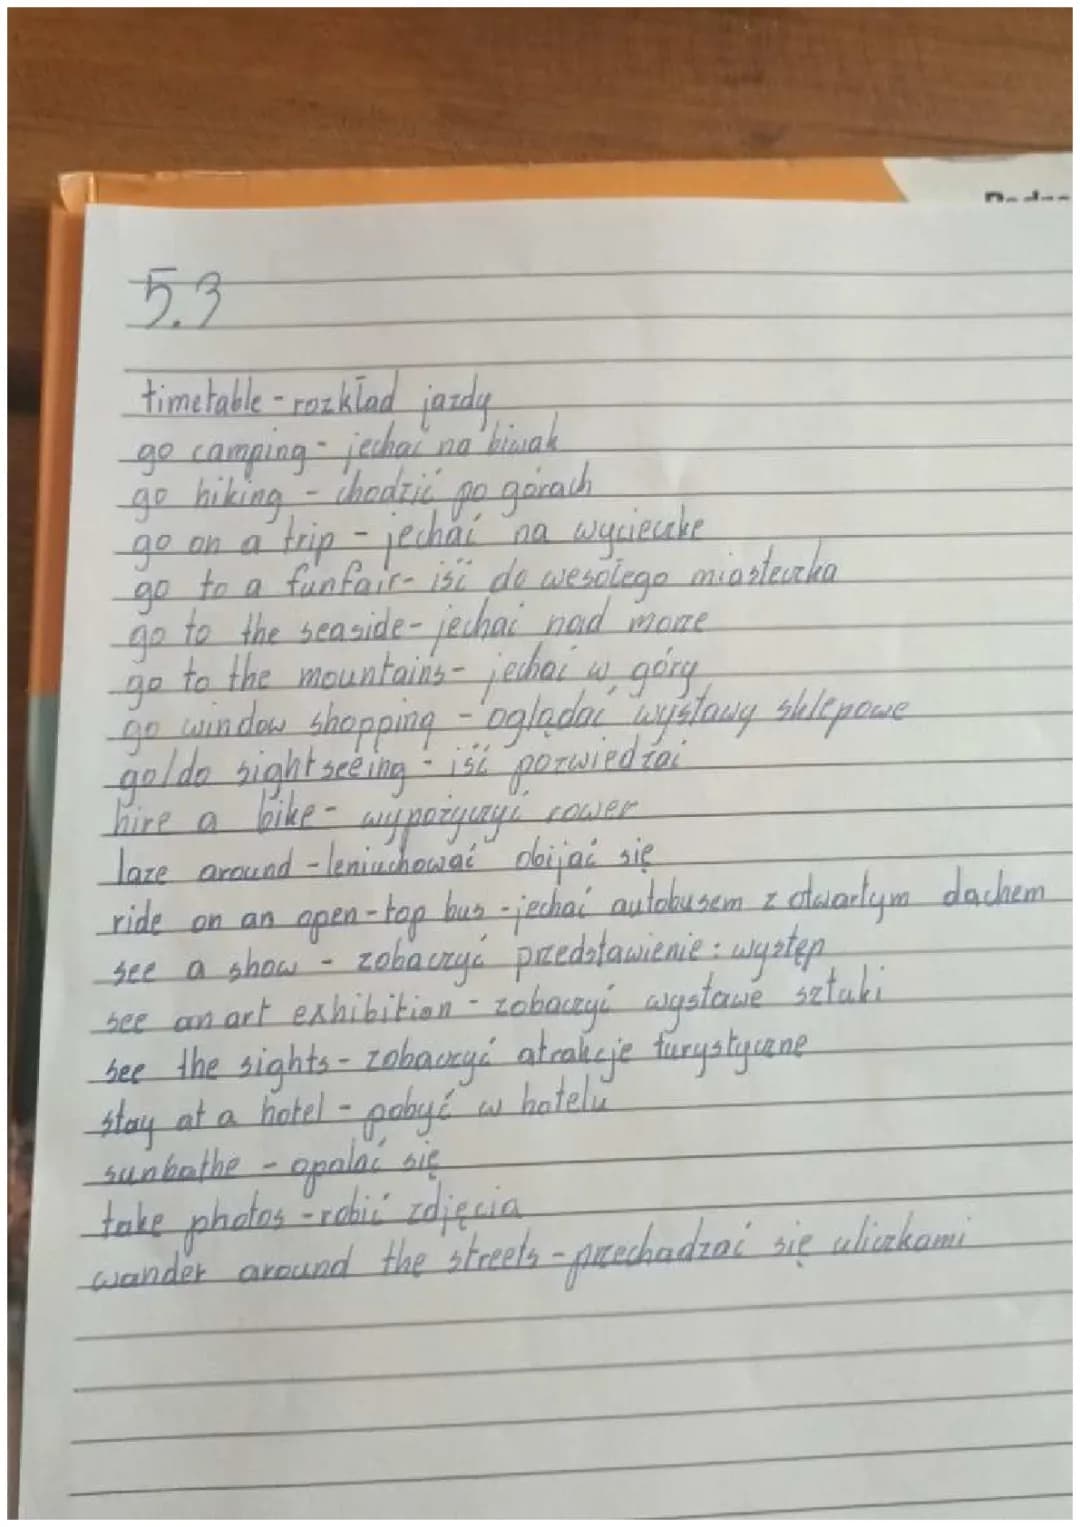 5.3
timetable - rozkład jazdy
go camping - jechać na biwak
go hiking - chodzić po górach
go on a trip - jechać na wycieczke
go to a funfair - iść do wesołego miasteczka
go to the seaside - jechać nad morze
go to the mountains - jechać w góry
go window shopping - oglądać wystawy sklepowe
go/do sightseeing - iść pozwiedzać
hire a bike - wypożyczyć rower
laze around - leniuchować obijać się
ride on an open-top bus - jechać autobusem z otwartym dachem
see a show - zobaczyć przedstawienie : występ
see an art exhibition - zobaczyć wystawę sztuki
see the sights - zobaczyć atrakcje turystyczne
stay at a hotel - pobyć w hotelu
sunbathe - opalać się
take photos - robić zdjęcia
wander around the streets - przechadzać się uliczkami